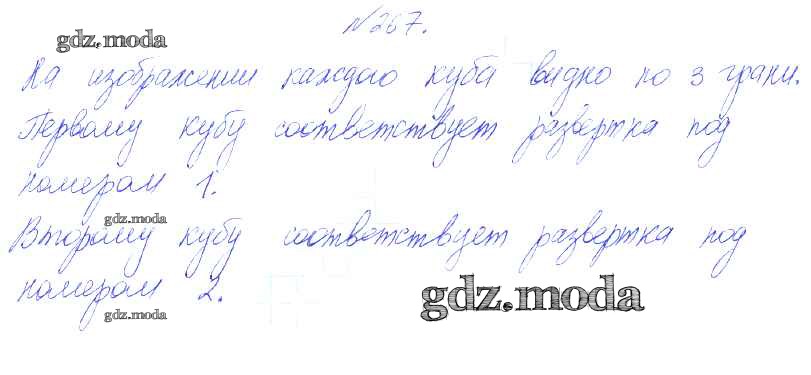 №267.
gdz.moda
На изображении каждого куба видно по 3 грани.
Первому кубу соответствует развертка под
номером 1.
gdz.moda
Второму кубу соответствует развертка под
номером 2.
gdz.moda
gdz.moda